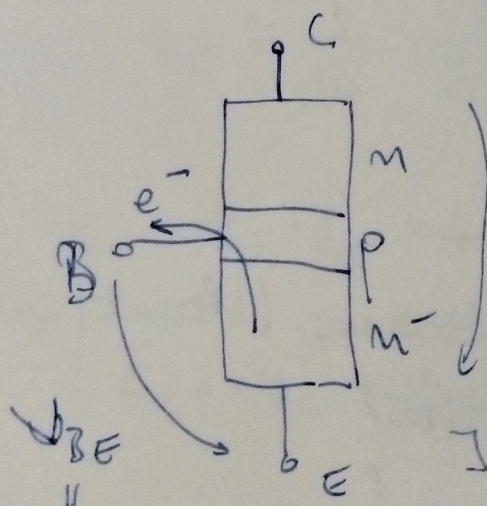 C
n
e⁻
B
p
n⁻
V_BE
E